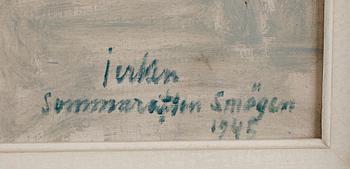 ierken
Sommarafton Smögen
1945